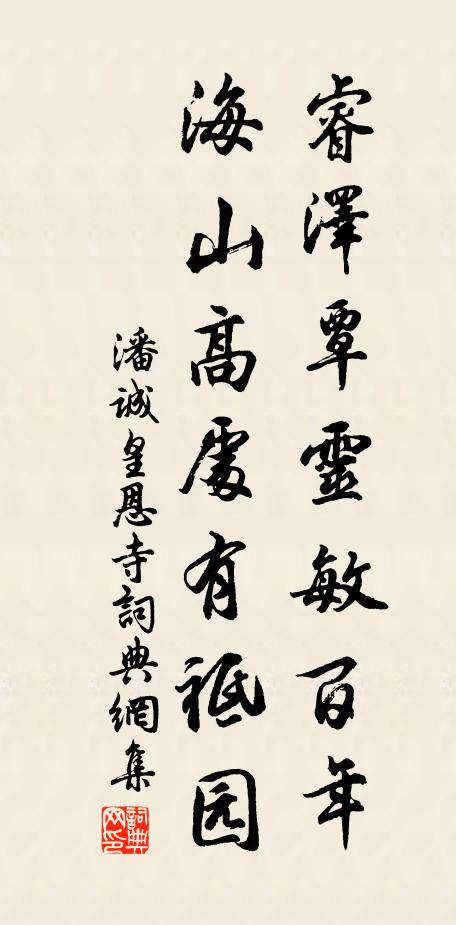 睿澤覃靈敏百年
海山高處有祗园
潘诚皇恩寺詞典網集
詞典網印